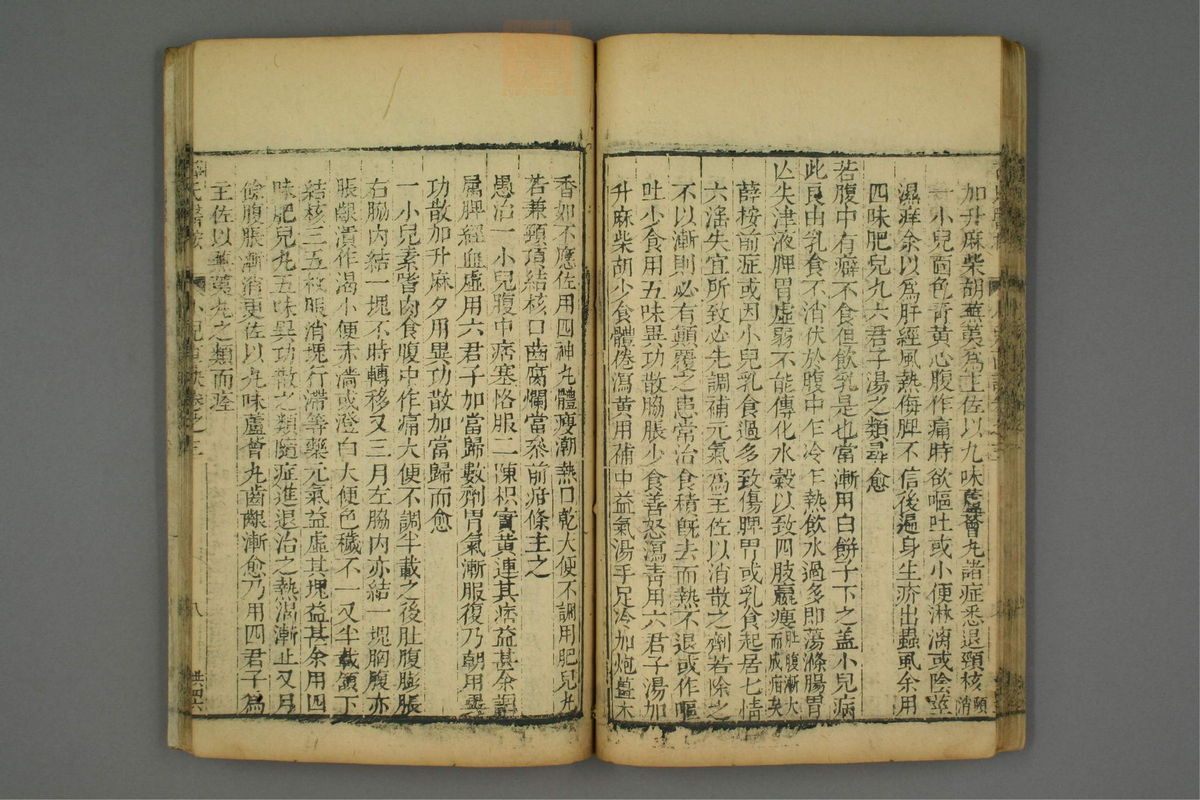 加升麻柴胡蕪荑爲主佐以九味蘆薈丸諸症悉退頸核頓消
一小兒面色青黃心腹作痛時欲嘔吐或小便淋漓或陰莖
濕痒余以爲肝經風熱侮脾不信後遍身生疥出蟲虱余用
四味肥兒丸六君子湯之類尋愈
若腹中有癖不食但飲乳是也當漸用白餅子下之盖小兒病
此良由乳食不消伏於腹中乍冷乍熱飲水過多即蕩滌腸胃
亡失津液脾胃虛弱不能傳化水穀以致四肢羸瘦肚腹漸大而成疳矣
薛按前症或因小兒乳食過多致傷脾胃或乳食起居七情
六淫失宜所致必先調補元氣爲主佐以消散之劑若除之
不以漸則必有顛覆之患常治食積旣去而熱不退或作嘔
吐少食用五味異功散脇脹少食善怒瀉青用六君子湯加
升麻柴胡少食體倦瀉黃用補中益氣湯手足冷加炮薑木
香如不應佐用四神丸體瘦潮熱口乾大便不調用肥兒丸
若兼頸項結核口齒腐爛當叅前疳條主之
愚治一小兒腹中痞塞恪服二陳枳實黃連其痞益甚余謂
屬脾經血虛用六君子加當歸數劑胃氣漸復乃朝用異
功散加升麻夕用異功散加當歸而愈
一小兒素嗜肉食腹中作痛大便不調半載之後肚腹膨脹
右脇內結一塊不時轉移又三月左脇內亦結一塊胸腹亦
脹齦潰作渴小便赤濇或澄白大便色穢不一又半載頷下
結核三五枚服消塊行滯等藥元氣益虛其塊益甚余用四
味肥兒丸五味異功散之類隨症進退治之熱渴漸止又月
餘腹脹漸消更佐以九味蘆薈丸齒齦漸愈乃用四君子爲
主佐以蕪荑丸之類而痊
薛氏醫按
小兒直訣卷之三
八
共四六